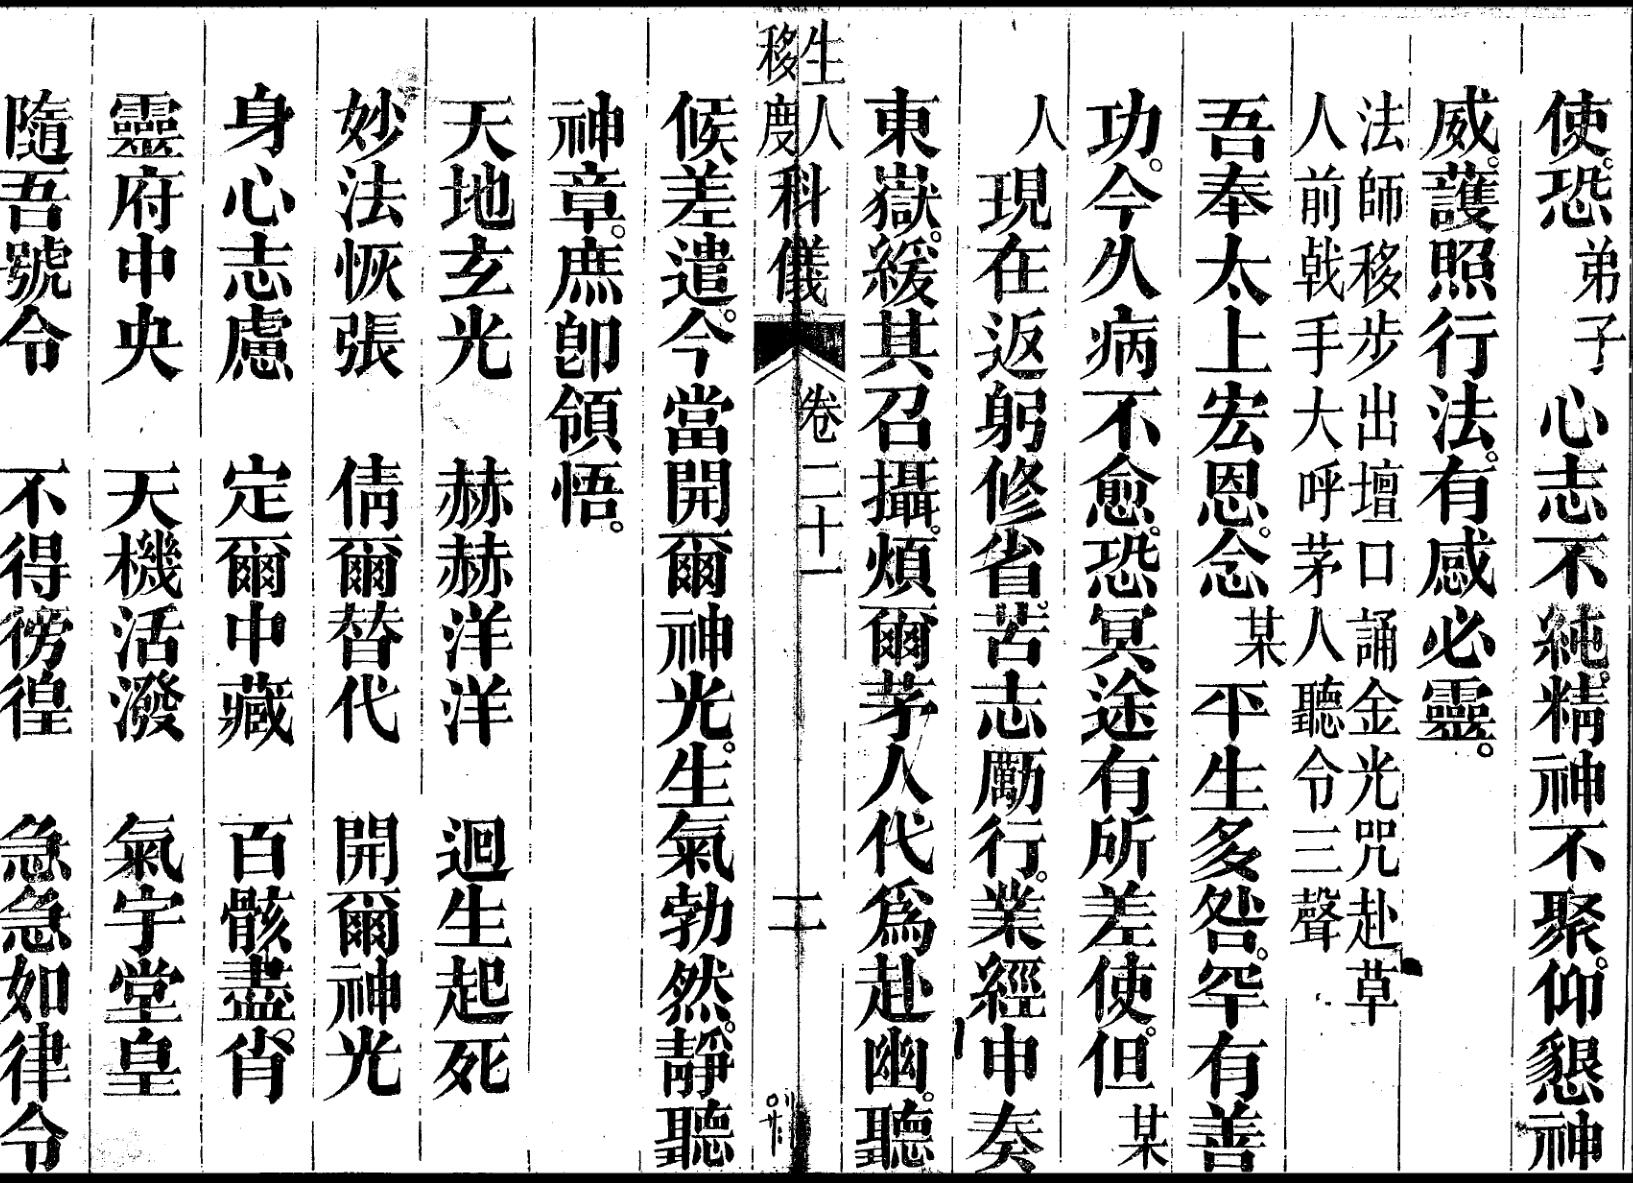 使。恐弟子心志不純。精神不聚。仰懇神
威。護照行法。有感必靈。
法師移步出壇口誦金光咒赴草
人前戟手大呼茅人聽令三聲
吾奉太上宏恩。念某平生多咎。罕有善
功。今久病不愈。恐冥途有所差使。但某
人現在返躬修省。苦志勵行。業經申奏
東嶽。緩其召攝。煩爾茅人代爲赴幽。聽
生人科儀卷二十一
移度 二
候差遣。今當開爾神光。生氣勃然。靜聽
神章。庶卽領悟。
天地玄光 赫赫洋洋 迴生起死
妙法恢張 倩爾替代 開爾神光
身心志慮 定爾中藏 百骸盡肖。
靈府中央 天機活潑 氣宇堂皇
隨吾號令 不得徬徨 急急如律令